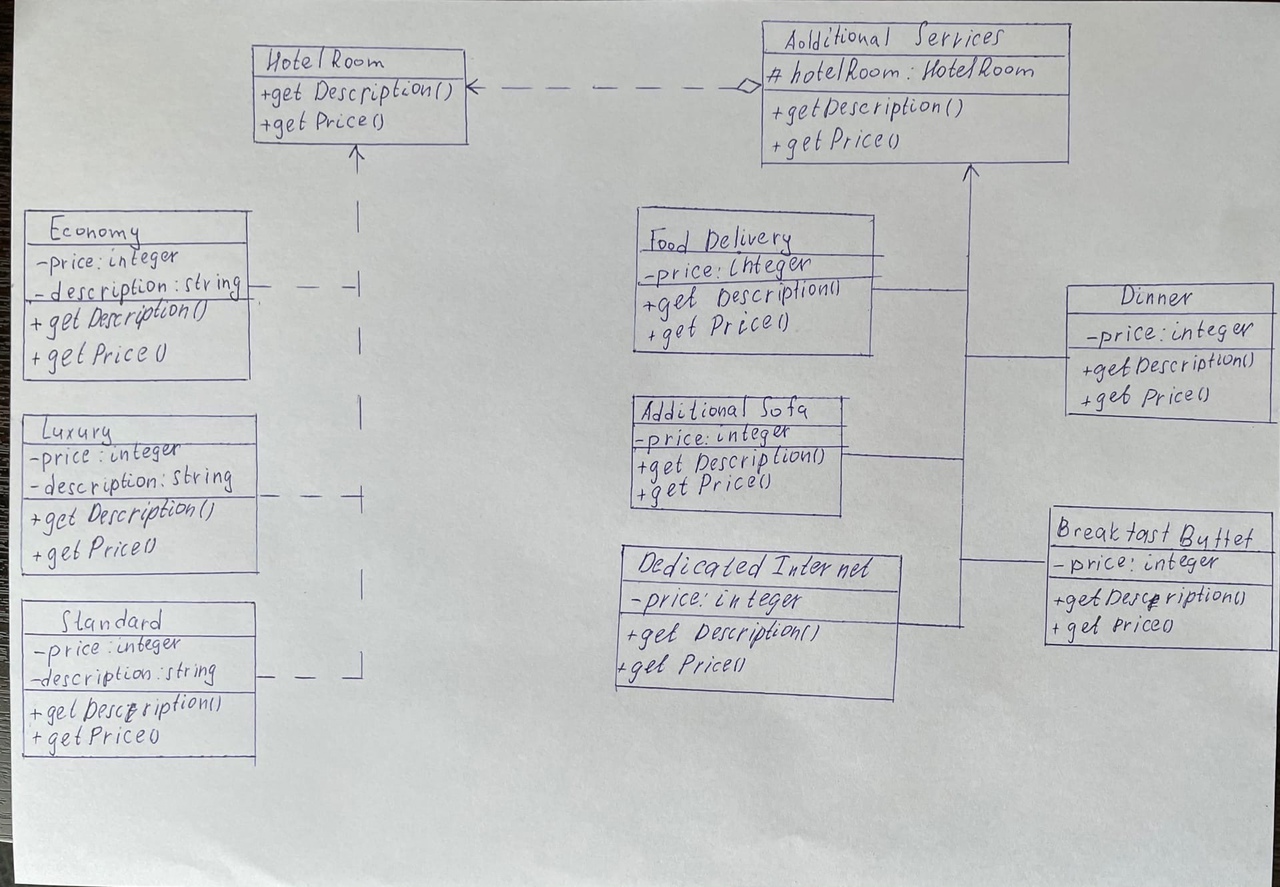 HotelRoom
+get Description()
+get Price()
Additional Services
# hotelRoom: HotelRoom
+getDescription()
+get Price()
Economy
-price: integer
-description: string
+ get Description()
+ get Price()
Luxury
-price: integer
-description: string
+get Description()
+get Price()
Standard
-price: integer
-description: string
+get Description()
+getPrice()
Food Delivery
-price: integer
+get Description()
+get Price()
Additional Sofa
-price: integer
+get Description()
+get Price()
Dedicated Internet
-price: integer
+get Description()
+get Price()
Dinner
-price: integer
+get Description()
+get Price()
Breakfast Buffet
-price: integer
+getDescription()
+ get Price()